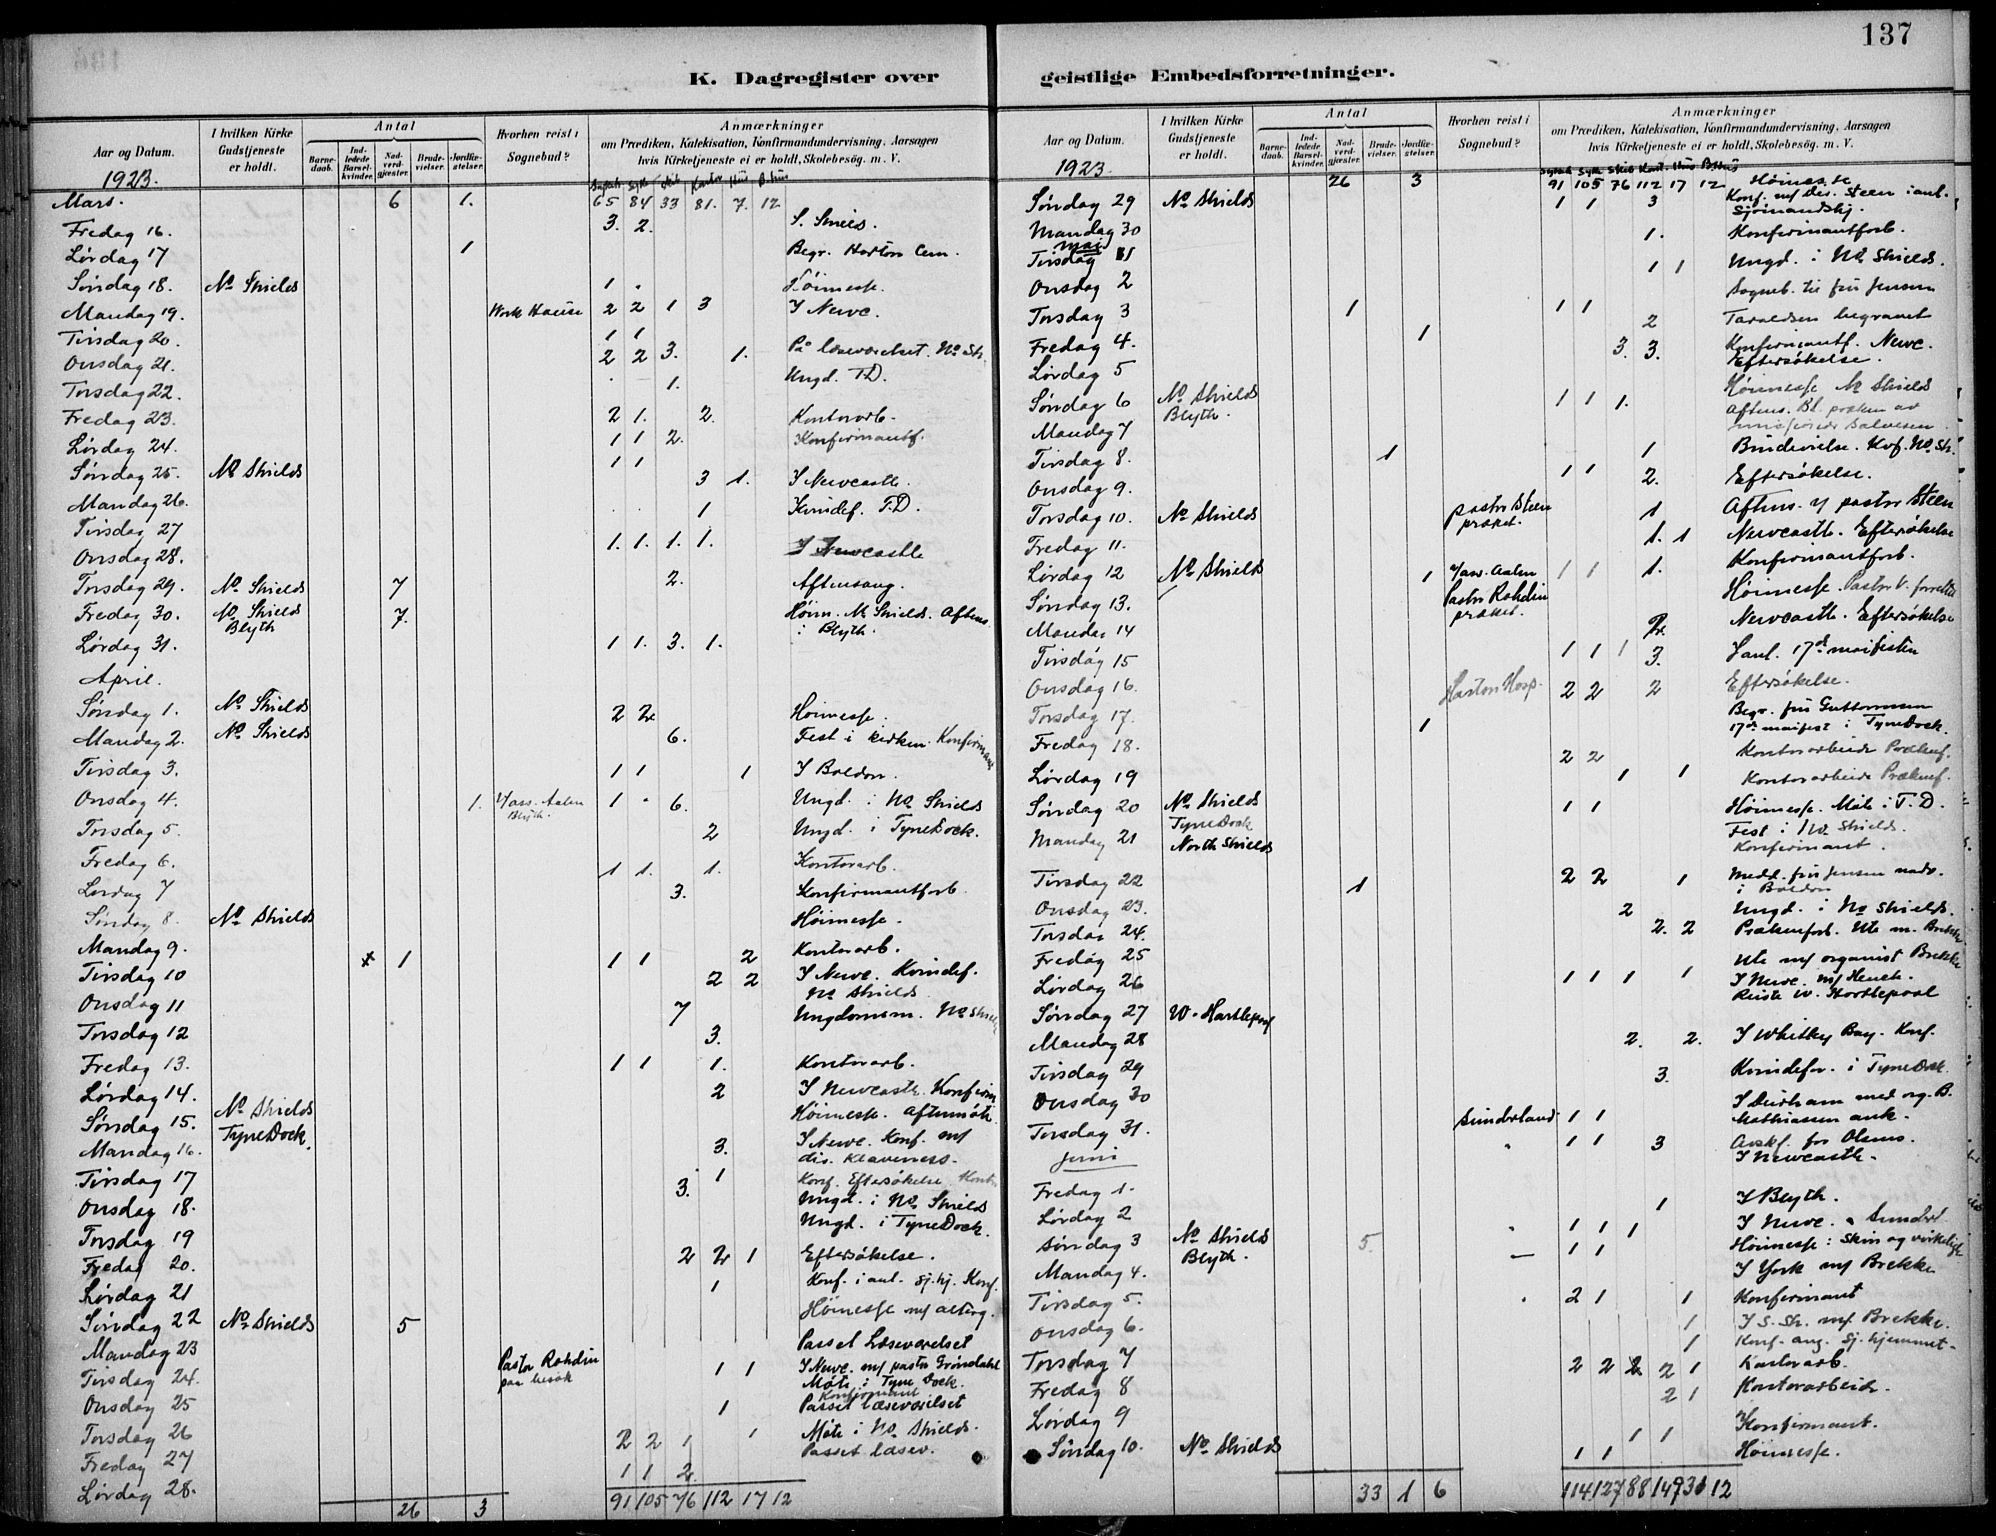 137
K. Dagregister over
Aar og Datum.
I hvilken Kirke
Gudstjeneste
er holdt.
Antal
Barne-
daab.
Ind-
ledede
Barsel-
kvinder.
Nad-
verd-
gjæster.
Brude-
vielser.
Jordfæ-
stelser.
Hvorhen reist i
Sognebud?
Anmærkninger
om Prædiken, Katekisation, Konfirmandundervisning, Aarsagen
hvis Kirketjeneste ei er holdt, Skolebesøg. m. V.
1923.
Mars. 6 1. 65 84 33 81. 7. 12
Fredag 16. 3. 2.
Lørdag 17 1 Begr. Harton Cem.
Søndag 18. No Shields 1 Høimesse.
Mandag 19. Work House 2 2 1 3 I Newc.
Tirsdag 20. 1 1
Onsdag 21. 2 2 3. 1. På læseværelset. No Sh.
Torsdag 22. 1. Ungd. T.D.
Fredag 23. 2 1. 2. Kontorarb.
Lørdag 24. 1 1 2. Konfirmantf.
Søndag 25. No Shields 1 1
Mandag 26. 3 1. I Newcastle.
Tirsdag 27 1 Kvindef. T.D.
Onsdag 28. 1. 1. 1. 1. I Newcastle
Torsdag 29. No Shields 7 2. Aftensang.
Fredag 30. No Shields 7. Høim. No Shields. Aftens.
Blyth i Blyth.
Lørdag 31. 1 1. 3. 1.
April.
Søndag 1. No Shields 2 2 Høimesse.
Mandag 2. No Shields 6. Fest i kirken. Konfirmant
Tirsdag 3. 1 1 1 I Boldon.
Onsdag 4. 1. Aalen 1 6. Ungd. i No Shields
Blyth.
Torsdag 5. 2 Ungd. i TyneDock.
Fredag 6. 1 1. 1. Kontorarb.
Lørdag 7 3. Konfirmantforb.
Søndag 8. No Shields Høimesse.
Mandag 9. 1 1 1 2 Kontorarb.
Tirsdag 10 2 2 I Newc. Kvindef.
No Shields
Onsdag 11 7 Ungdomsm. No Shields
Torsdag 12 3.
Fredag 13. 1 1 1. Kontorarb.
Lørdag 14. 2 I Newcastle. Konfirm
Søndag 15. No Shields Høimesse. Aftenmøte
TyneDock.
Mandag 16. 3. I Newc. Konf. m/
dis. Klaveness.
Tirsdag 17 1 Konf. Eftersøkelse.
Onsdag 18. 3. Ungd. i No Shields
Torsdag 19 Ungd. i TyneDock.
Fredag 20. 2 2 1 Eftersøkelse.
Lørdag 21 1 Konf. i anl. sj.hj. Konf.
Søndag 22 No Shields 5 Høimesse m/ alterg.
Mandag 23 Passet Læseværelset
Tirsdag 24. Pastor Rohdin 1 1 I Newc. m/ pastor Grøndahl
paa besøk Møte i Tyne Dock.
Konfirmant
Onsdag 25 1 Passet læseværelset
Torsdag 26 2 2 1 1 Møte i No Shields.
Fredag 27 Passet læsev.
Lørdag 28. 1 1 2
26 3 91 105 76 112 17 12
geistlige Embedsforretninger.
Aar og Datum.
I hvilken Kirke
Gudstjeneste
er holdt.
Antal
Barne-
daab.
Ind-
ledede
Barsel-
kvinder.
Nad-
verd-
gjæster.
Brude-
vielser.
Jordfæ-
stelser.
Hvorhen reist i
Sognebud?
Anmærkninger
om Prædiken, Katekisation, Konfirmandundervisning, Aarsagen
hvis Kirketjeneste ei er holdt, Skolebesøg. m. V.
1923.
26 3 91 105 76 112 17 12 Høimesse
Søndag 29 No Shields 1 1 3 Konf. m/ des. Steen i anl.
Sjømandshj.
Mandag 30 1. Konfirmantforb.
Mai
Tirsdag 1 1 1 Ungd. i No Shields.
Onsdag 2 Sogneb. til fru Jensen
Torsdag 3 1 1 1 2 Taraldsen begravet
Fredag 4. 1 3. 3. Konfirmantf. Newc.
Lørdag 5 Eftersøkelse.
Søndag 6 No Shields 1 1 1. Høimesse No Shields
Blyth. Aftens. Bl. præken av
Mandag 7
Tirsdag 8. 1 1 Brudevielse. Kof. No Sh.
Onsdag 9. 1 1 2. Eftersøkelse.
Torsdag 10. No Shields pastor Steen 1 Aftens. v/ pastor Steen
præket.
Fredag 11. 1. 1 Newcastle. Eftersøkelse
Lørdag 12 No Shields 1 Aalen 1 1 1. Konfirmantforb.
Søndag 13. Pastor Rohdin Høimesse
præket.
Mandag 14 2 Newcastle. Eftersøkelse
Tirsdag 15 1 1 1 3. I anl. 17de maifesten
Onsdag 16. Harton Hosp. 2 2 2 Eftersøkelse.
Torsdag 17. 1 Begr. fru Guttormsen
17de maifest i TyneDock.
Fredag 18. 2 2 Kontorarbeide Prækenf.
Lørdag 19 1 1 Kontorarbeide Prækenf.
Søndag 20 No Shields 1 1 Høimesse. Møte i T.D.
TyneDock
Mandag 21 North Shields Fest i No Shields.
Konfirmant.
Tirsdag 22 1 2 2 1 Medd. fru Jensen nadv.
i Boldon
Onsdag 23. 2 Ungd. i No Shields.
Torsdag 24. 2. 2 Prækenforb. Ute m. Brekke
Fredag 25 Ute m/ organist Brekke
Lørdag 26 1 1 1 1 I Newc. m/ Henck.
Reiste W. Hartlepool
Søndag 27 W. Hartlepool
Mandag 28 2. 2. I Whitley Bay. Konf.
Tirsdag 29 3. Kvindefor. i TyneDock.
Onsdag 30 I Durham med org. B.
Sunderland 1 1 Mathiassen ank.
Torsdag 31. 1 1 3 Avskf. for Olsens.
Juni I Newcastle.
Fredag 1. 1 I Blyth.
Lørdag 2 1 1 1 I Newc. Sunderl.
Søndag 3 No Shields 5. 1 1 Høimesse: Skin og virkeligh
Blyth.
Mandag 4. I York m/ Brekke
Tirsdag 5. 2 1 1 Konfirmant
Onsdag 6. 1 I S. Sh. m/ Brekke.
1 Konf. ang. Sj. hjemmet.
Torsdag 7 2 2 2 2 1 Kontorarb.
Fredag 8 2 1 Kontorarbeide.
Lørdag 9 1 1 Konfirmant.
Søndag 10. No Shields 1 1 Høimesse.
33 1 6 114 127 88 149 31 12